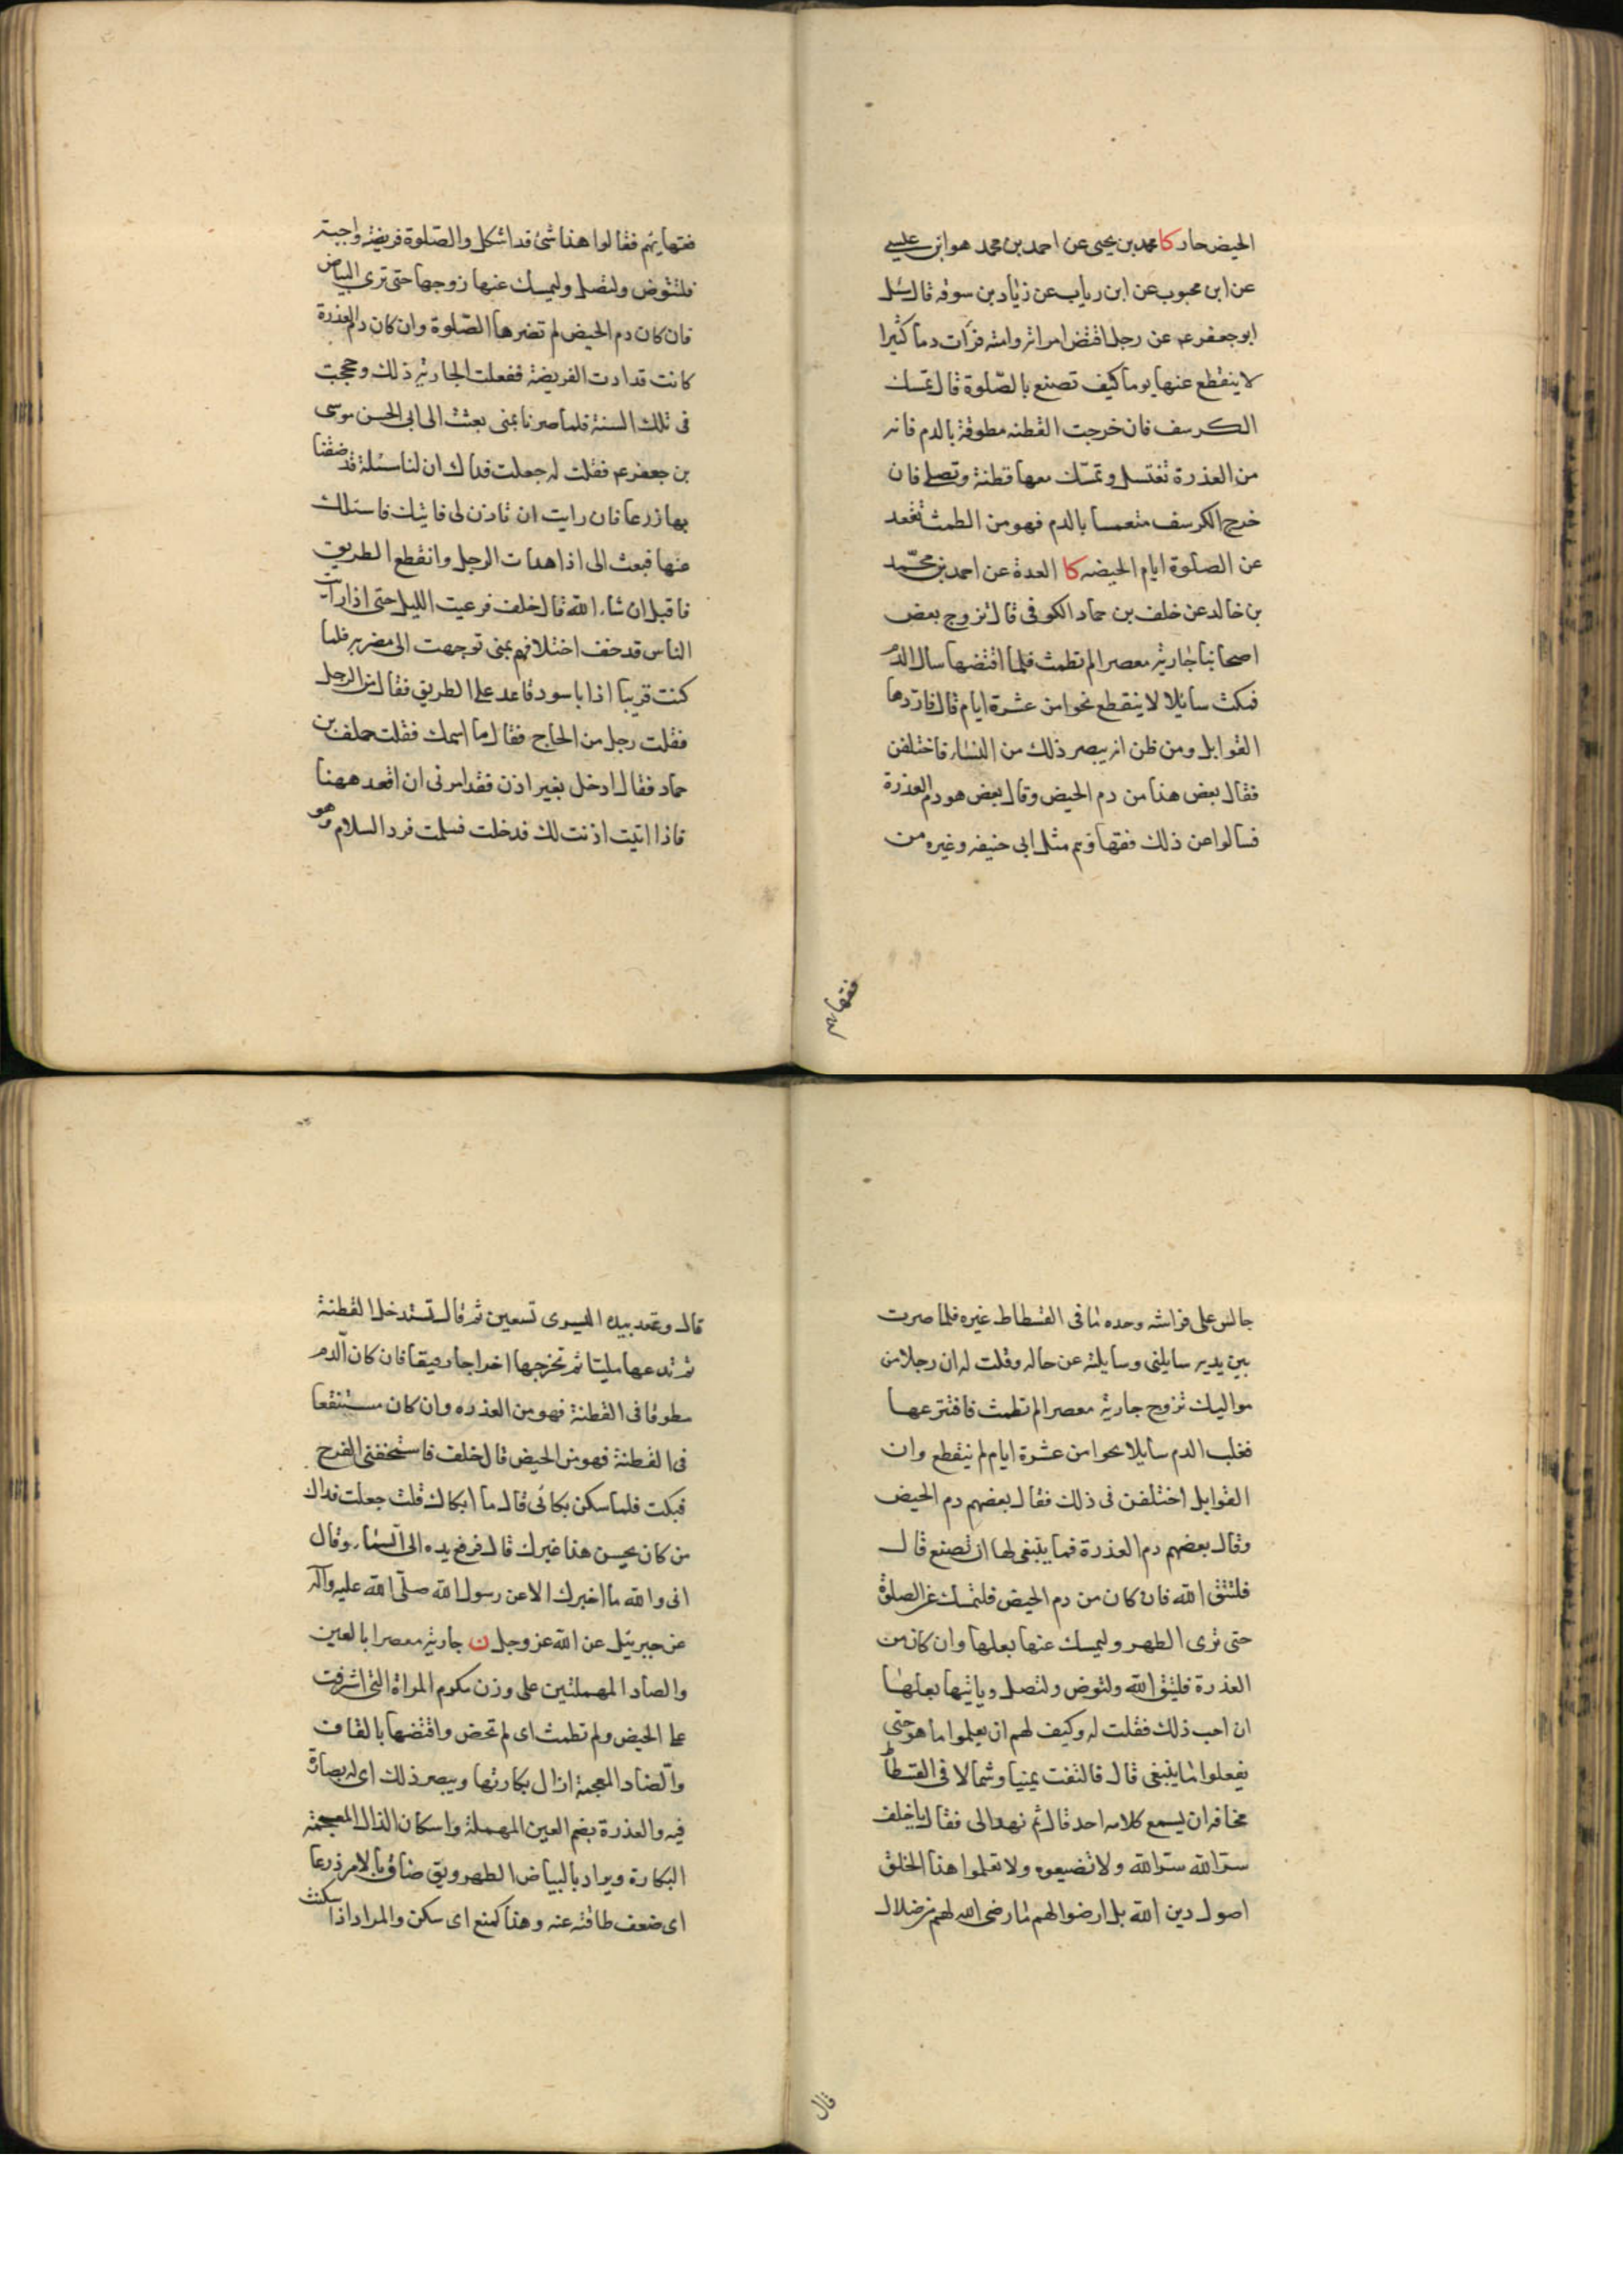 الحيض حار كا محمد بن يحيى عن احمد بن محمد هو ابن عيسى
عن ابن محبوب عن ابن رياب عن زياد بن سوقه قال سئل
ابو جعفر ع عن رجل اقتض امراته وامته فرأت دما كثيرا
لا ينقطع عنها يوما كيف تصنع بالصّلوة قال تمسك
الكرسف فان خرجت القطنه مطوقة بالدم فانه
من العذرة تغتسل وتمسّك معها قطنة وتصلى فان
خرج الكرسف منغمسا بالدم فهو من الطمث تقعد
عن الصلوة ايام الحيضه كا العدة عن احمد بن محمّد
بن خالد عن خلف بن حماد الكوفى قال تزوج بعض
اصحابنا جارية معصرا لم تطمث فلما اقتضها سال الدّم
فمكث سائلا لا ينقطع نحوا من عشرة ايام قال فاروها
القوابل ومن ظن انه يبصر ذلك من النساء فاختلفن
فقال بعض هذا من دم الحيض وقال بعض هو دم العذرة
فسالوا عن ذلك فقهاؤهم مثل ابى حنيفه وغيره من
فقهائهم
فقهائهم فقالوا هذا شئ قد اشكل والصّلوة فريضة واجبة
فلتتوض ولتصل وليمسك عنها زوجها حتى ترى البياض
فان كان دم الحيض لم تضرها الصّلوة وان كان دم العذرة
كانت قد ادت الفريضة ففعلت الجارية ذلك وحججت
فى تلك السنة فلما صرنا بمنى بعثت الى ابى الحسن موسى
بن جعفر ع فقلت له جعلت فداك ان لنا مسئلة قد ضقنا
بها ذرعا فان رايت ان تاذن لى فاتيك فاسئلك
عنها فبعث الى اذا هدات الرجل وانقطع الطريق
فاقبل ان شاء الله قال خلف فرعيت الليل حتى اذا رايت
الناس قد خف اختلافهم بمنى توجهت الى مضربه فلما
كنت قريبا اذا باسود قاعد على الطريق فقال من الرجل
فقلت رجل من الحاج فقال ما اسمك فقلت خلف بن
حماد فقال ادخل بغير اذن فقد امرنى ان اقعد ههنا
فاذا اتيت اذنت لك فدخلت فسلمت فرد السلام وهو
جالس على فراشه وحده ما فى الفسطاط غيره فلما صرت
بين يديه سايلنى وسايلته عن حاله وقلت له ان رجلا من
مواليك تزوج جارية معصرا لم تطمث فافترعها
فغلب الدم سايلا نحوا من عشرة ايام لم ينقطع وان
القوابل اختلفن فى ذلك فقال بعضهم دم الحيض
وقال بعضهم دم العذرة فما ينبغى لها ان تصنع قال
فلتتق الله فان كان من دم الحيض فلتمسك عن الصلوة
حتى ترى الطهر وليمسك عنها بعلها وان كان من
العذرة فلتتق الله ولتوض ولتصل وياتيها بعلها
ان احب ذلك فقلت له وكيف لهم ان يعلموا ما هو حتى
يفعلوا ما ينبغى قال فالتفت يمينا وشمالا فى الفسطاط
مخافه ان يسمع كلامه احد قال ثم نهد الى فقال يا خلف
سرّ الله سرّ الله ولا تضيعوه ولا تعلموا هذا الخلق
اصول دين الله بل ارضوا لهم ما رضى الله لهم من ضلال
قال
قال وعقد بيده اليسرى تسعين ثم قال تستدخل القطنة
ثم تدعها مليا ثم تخرجها اخراجا رفيقا فان كان الدم
مطوقا فى القطنة فهو من العذره وان كان مستنقعا
فى القطنة فهو من الحيض قال خلف فاستخفنى الفرح
فبكت فلما سكن بكائى قال ما ابكاك قلت جعلت فداك
من كان يحسن هذا غيرك قال فرفع يده الى السّماء وقال
انى والله ما اخبرك الا عن رسول الله صلّى الله عليه واله
عن جبرئيل عن الله عز وجل ن جارية معصرا بالعين
والصاد المهملتين على وزن مكرم المراة التى اشرفت
على الحيض ولم تطمث اى لم تحض واقتضها بالقاف
والضاد المعجمة ازال بكارتها ويبصر ذلك اى له بصارة
فيه والعذرة بضم العين المهملة واسكان الذال المعجمة
البكارة ويراد بالبياض الطهر ويق ضاق بالامر ذرعا
اى ضعف طاقته عنه وهدا كمنع اى سكن والمراد اذا سكنت